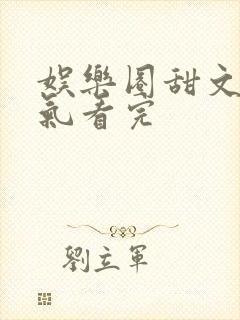 娛樂圈甜文
氣看完
劉立軍